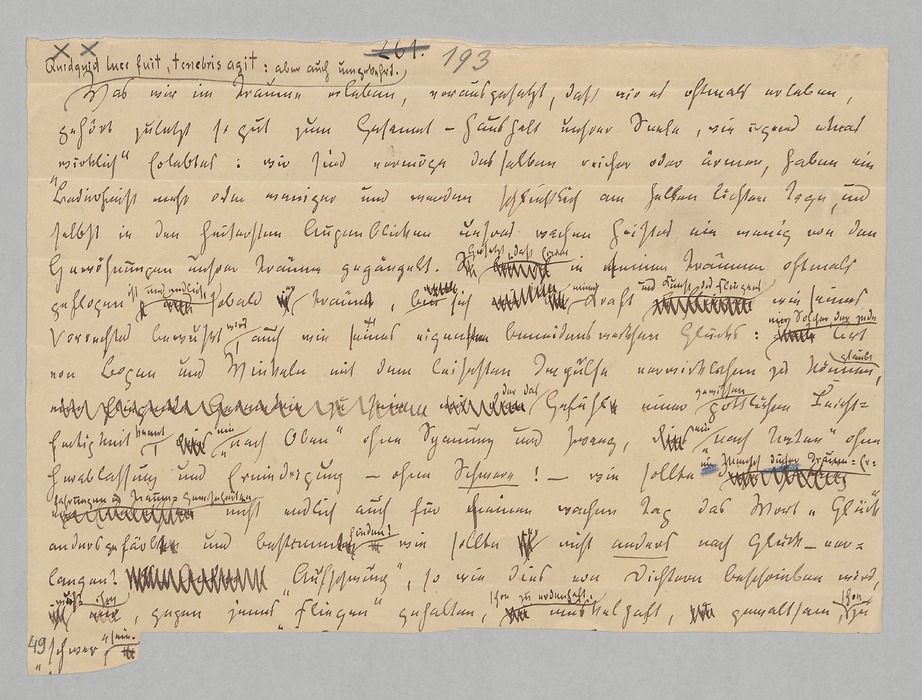 261. 193
Quidquid luce fuit, tenebris agit: aber auch umgekehrt.
Was wir im Traume erleben, vorausgesetzt, daß wir es oftmals erleben,
gehört zuletzt so gut zum Gesammt-Haushalt unsrer Seele, wie irgend etwas
„wirklich“ Erlebtes: wir sind vermöge desselben reicher oder ärmer, haben ein
Bedürfniß mehr oder weniger und werden schließlich am hellen lichten Tage, und
selbst in den heitersten Augenblicken unsres wachen Geistes ein wenig von den
Gewöhnungen unsrer Träume gegängelt. Gesetzt, daß Einer in seinen Träumen oftmals
geflogen ist und endlich, sobald er träumt, sich einer Kraft und Kunst des Fliegens wie seines
Vorrechtes bewußt wird, auch wie seines eigensten beneidenswerthen Glücks: ein Solcher, der jede Art
von Bogen und Winkeln mit dem leisesten Impulse verwirklichen zu können glaubt,
der das Gefühl einer gewissen göttlichen Leicht-
fertigkeit kennt, ein „nach Oben“ ohne Spannung und Zwang, ein „nach Unten“ ohne
Herablassung und Erniedrigung – ohne Schwere! – wie sollte der Mensch solcher Traum-Er-
fahrungen und Traum-Gewohnheiten nicht endlich auch für seinen wachen Tag das Wort „Glück“
anders gefärbt und bestimmt finden! wie sollte er nicht anders nach Glück – ver-
langen? „Aufschwung“, so wie dies von Dichtern beschrieben wird,
muß ihm, gegen jenes „Fliegen“ gehalten, schon zu erdenhaft, muskelhaft, gewaltsam, schon zu
49 „schwer“ sein.